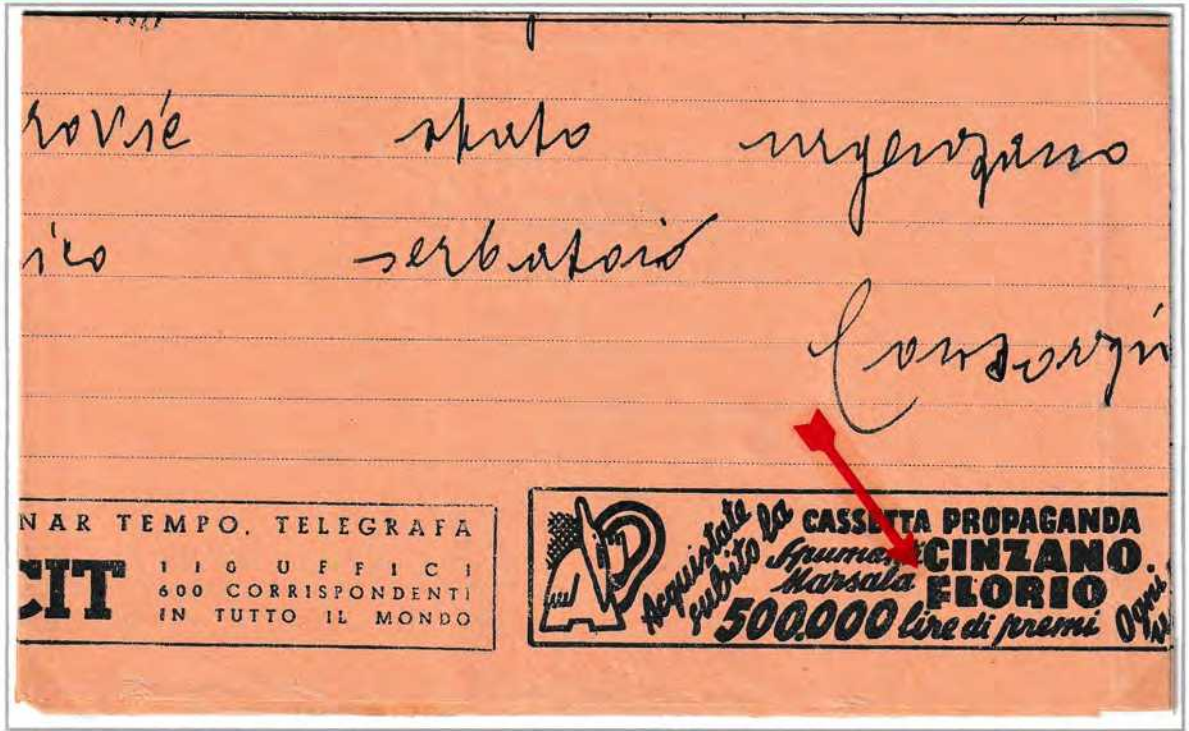 rović spalo urgenzano
ico serbatoio
Consorzi
NAR TEMPO, TELEGRAFA
CIT
110 UFFICI
600 CORRISPONDENTI
IN TUTTO IL MONDO
Acquistate
subito la
CASSETTA PROPAGANDA
CINZANO.
Marsala FLORIO
500.000 lire di premi
Ogni